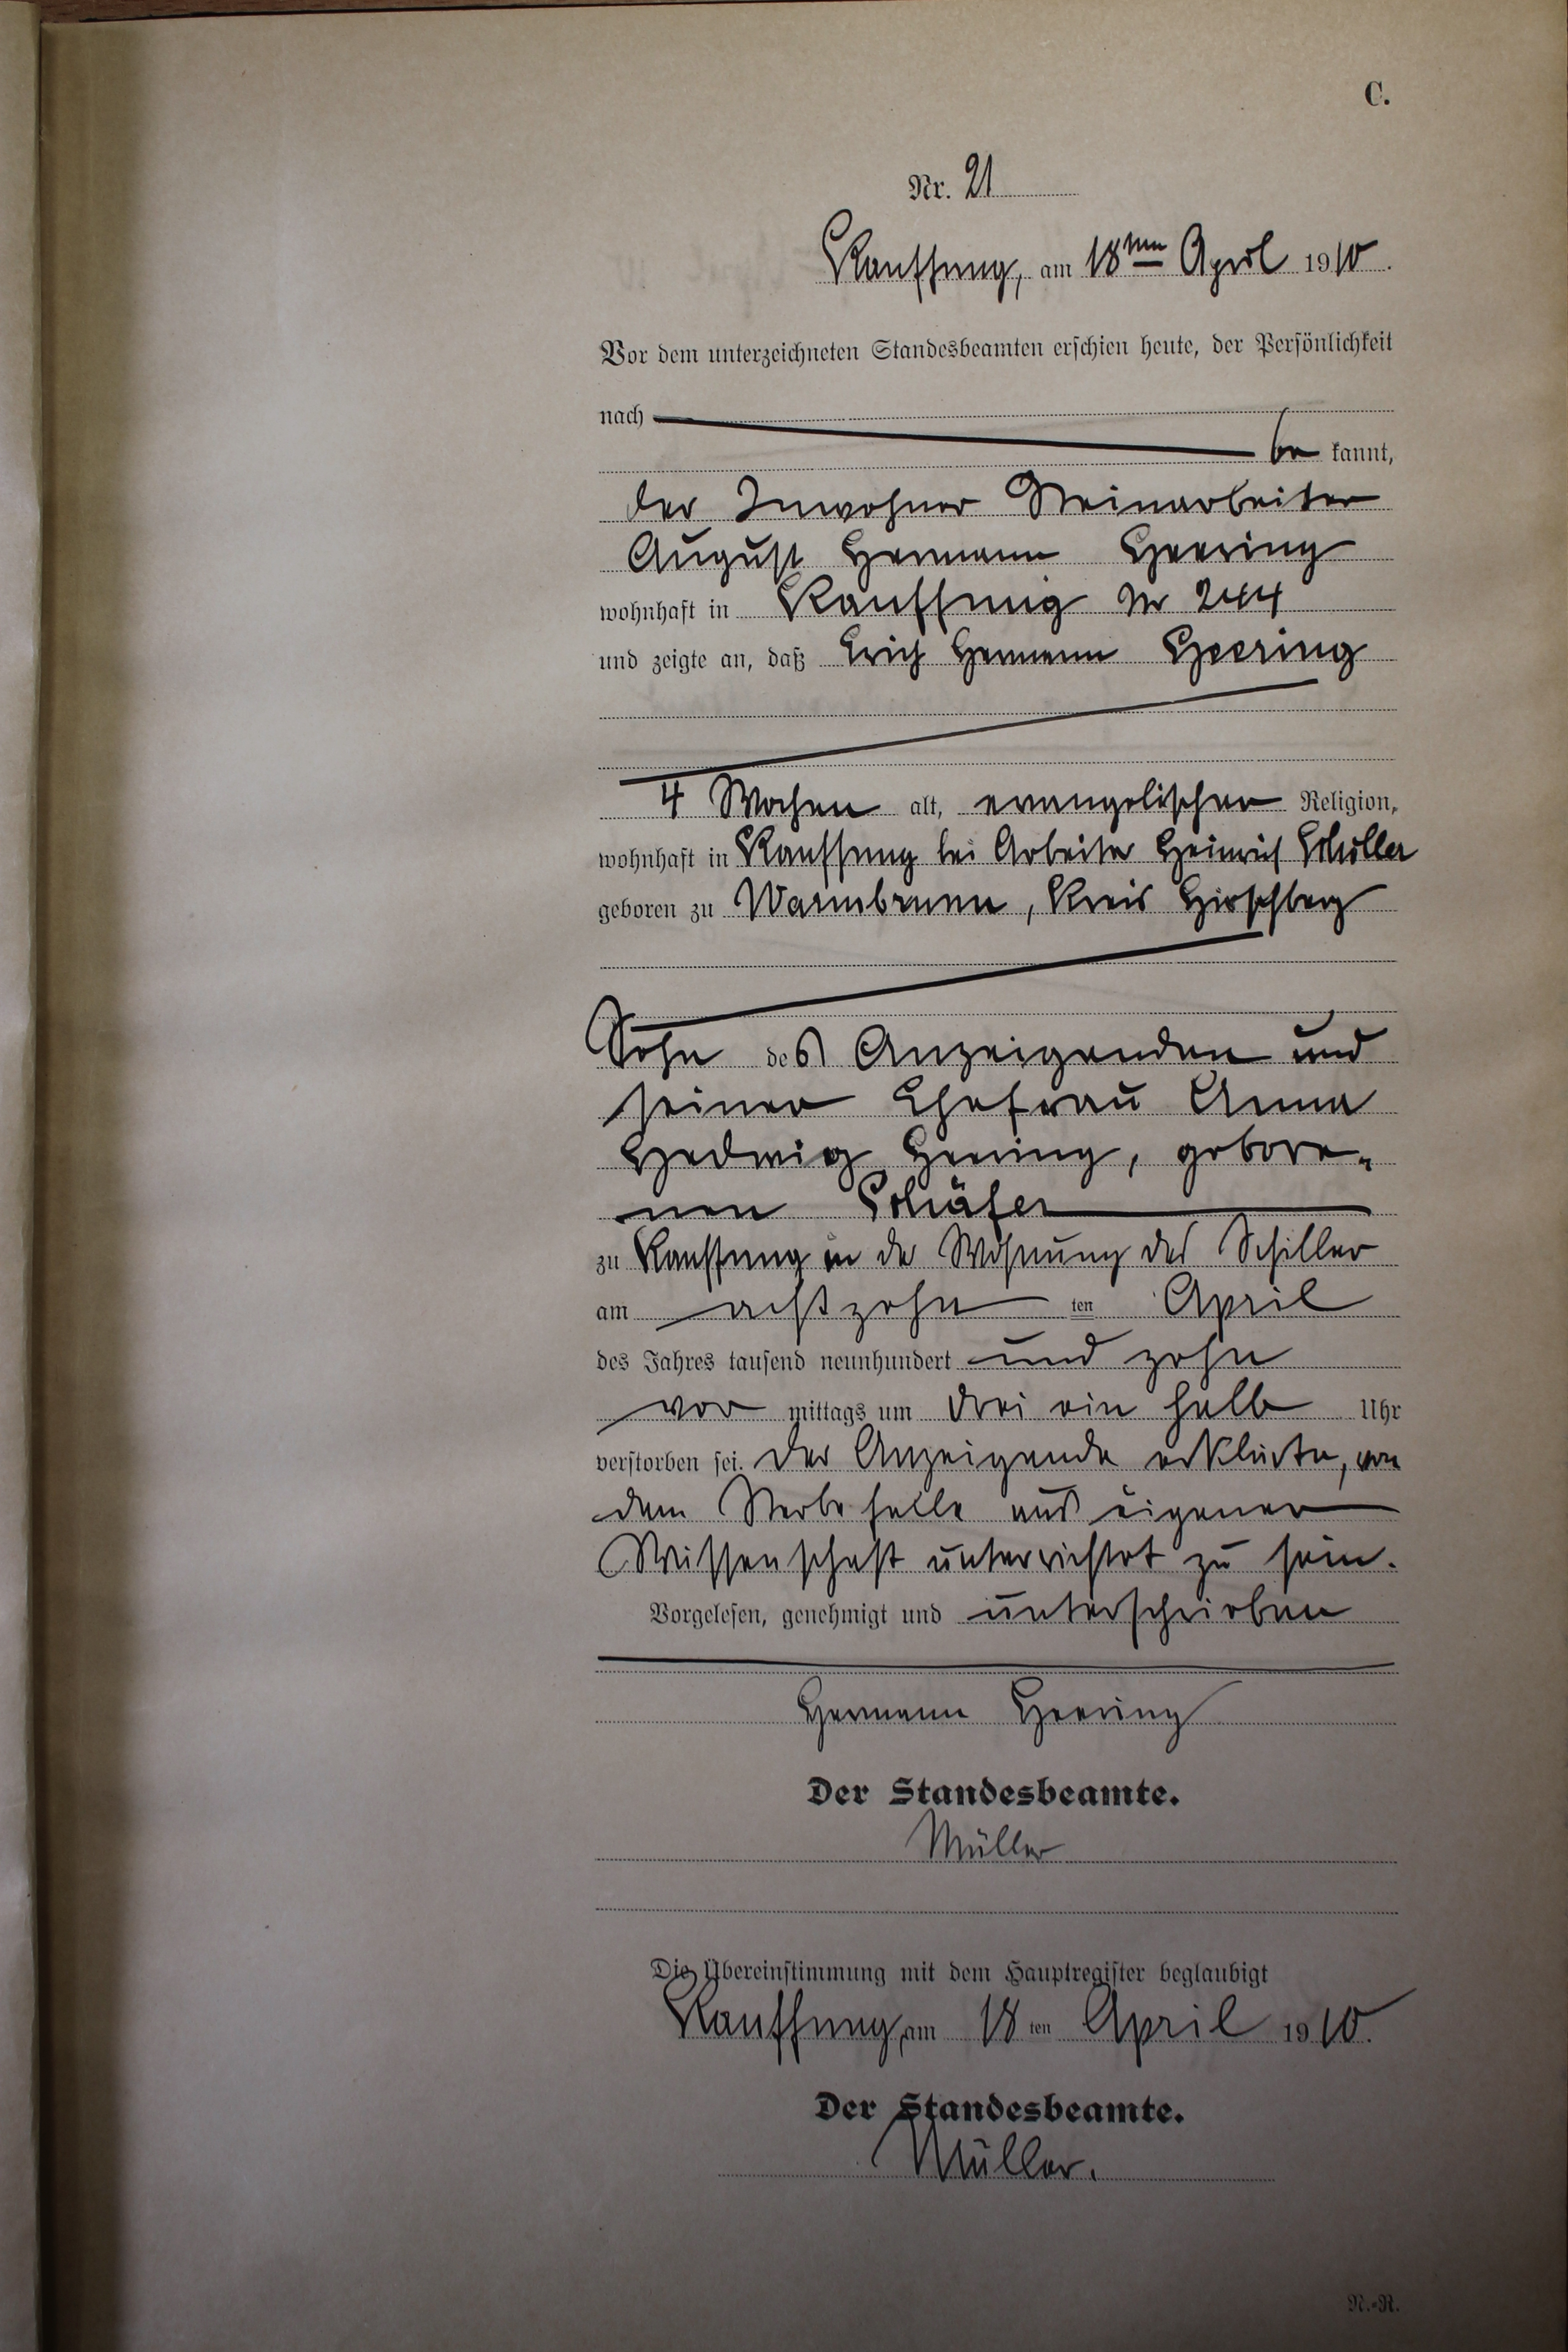 C.
Nr. 21
Kauffung, am 18ten April 1910.
Vor dem unterzeichneten Standesbeamten erschien heute, der Persönlichkeit
nach
be kannt,
der Inwohner Steinarbeiter
August Hermann Heering
wohnhaft in Kauffung Nr 244
und zeigte an, daß Erich Hermann Heering
4 Wochen alt, evangelischer Religion,
wohnhaft in Kauffung bei Arbeiter Heinrich Schiller
geboren zu Warmbrunn, Kreis Hirschberg
Sohn des Anzeigenden und
seiner Ehefrau Anna
Hedwig Heering, gebore-
nen Schäfer
zu Kauffung in der Wohnung des Schiller
am achtzehn ten April
des Jahres tausend neunhundert und zehn
vor mittags um drei ein halb Uhr
verstorben sei. Der Anzeigende erklärte, von
dem Sterbefalle aus eigener
Wissenschaft unterrichtet zu sein.
Vorgelesen, genehmigt und unterschrieben
Hermann Heering
Der Standesbeamte.
Müller
Die Übereinstimmung mit dem Hauptregister beglaubigt
Kauffung, am 18 ten April 1910.
Der Standesbeamte.
Müller.
N.-R.